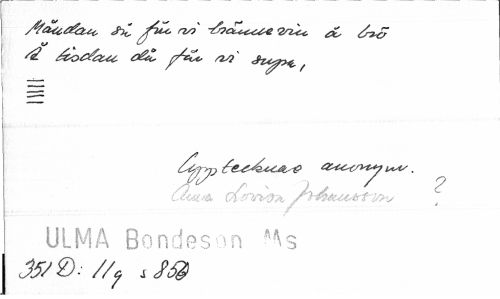 Måndan då får vi brännevin å brö
Å tisdan då får vi supa,
Upptecknas anonym.
Anna Lovisa Johansson ?
ULMA Bondeson Ms
351 D: 11q s 856